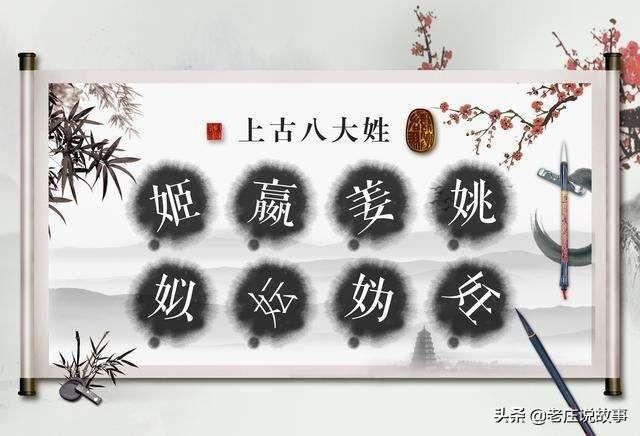 上古八大姓
姬 嬴 姜 姚
姒 妘 妫 妊
头条 @老庄说故事